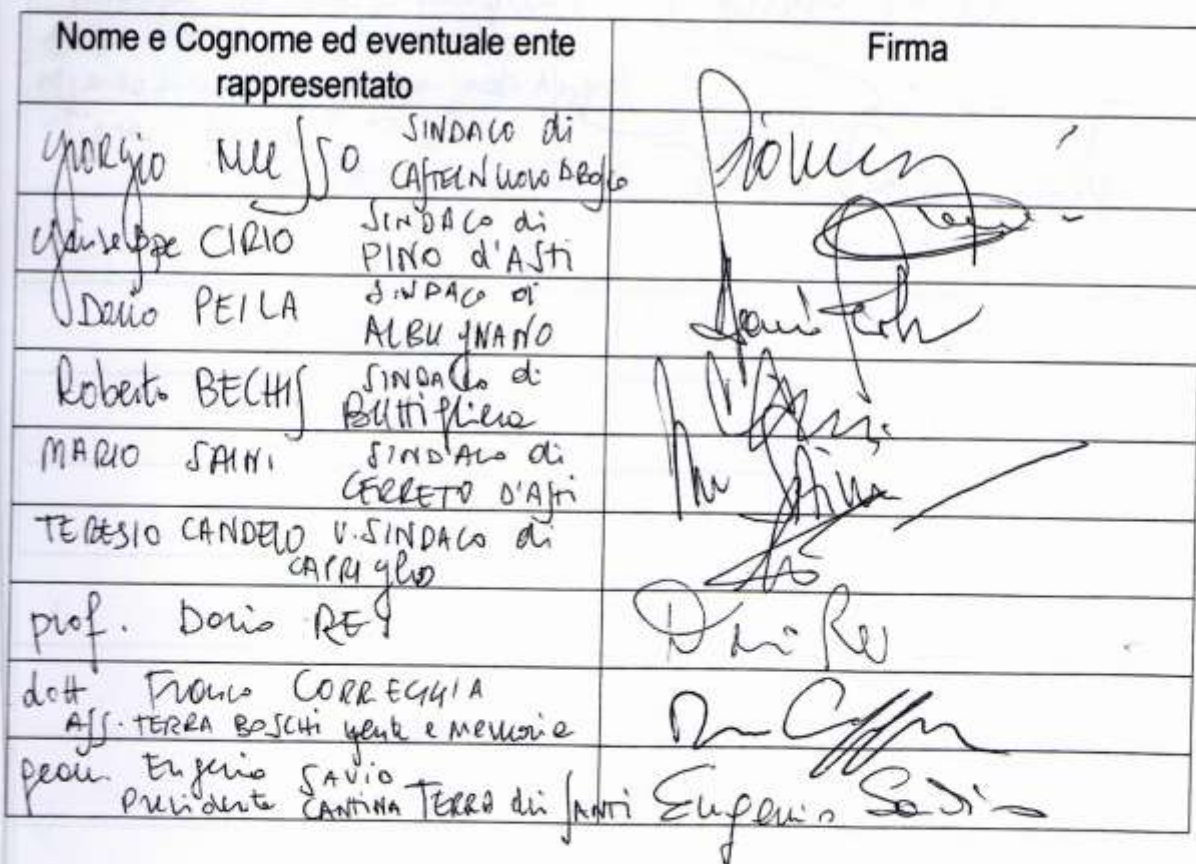 Nome e Cognome ed eventuale ente
rappresentato
Firma
Giorgio MUSSO SINDACO di
CASTELNUOVO D BOSCO
Giuseppe CIRIO SINDACO di
PINO d'ASTI
Dario PEILA SINDACO di
ALBUGNANO
Roberto BECHIS SINDACO di
BUTTIGLIERA
MARIO SAINI SINDACO di
CERRETO D'ASTI
TERESIO CANDELO V.SINDACO di
CAPRIGLIO
prof. Dario REI
Dario Rei
dott Franco CORREGGIA
ASS. TERRA BOSCHI gente e memorie
geom. Eugenio SAVIO
Presidente CANTINA TERRA dei SANTI
Eugenio Savio